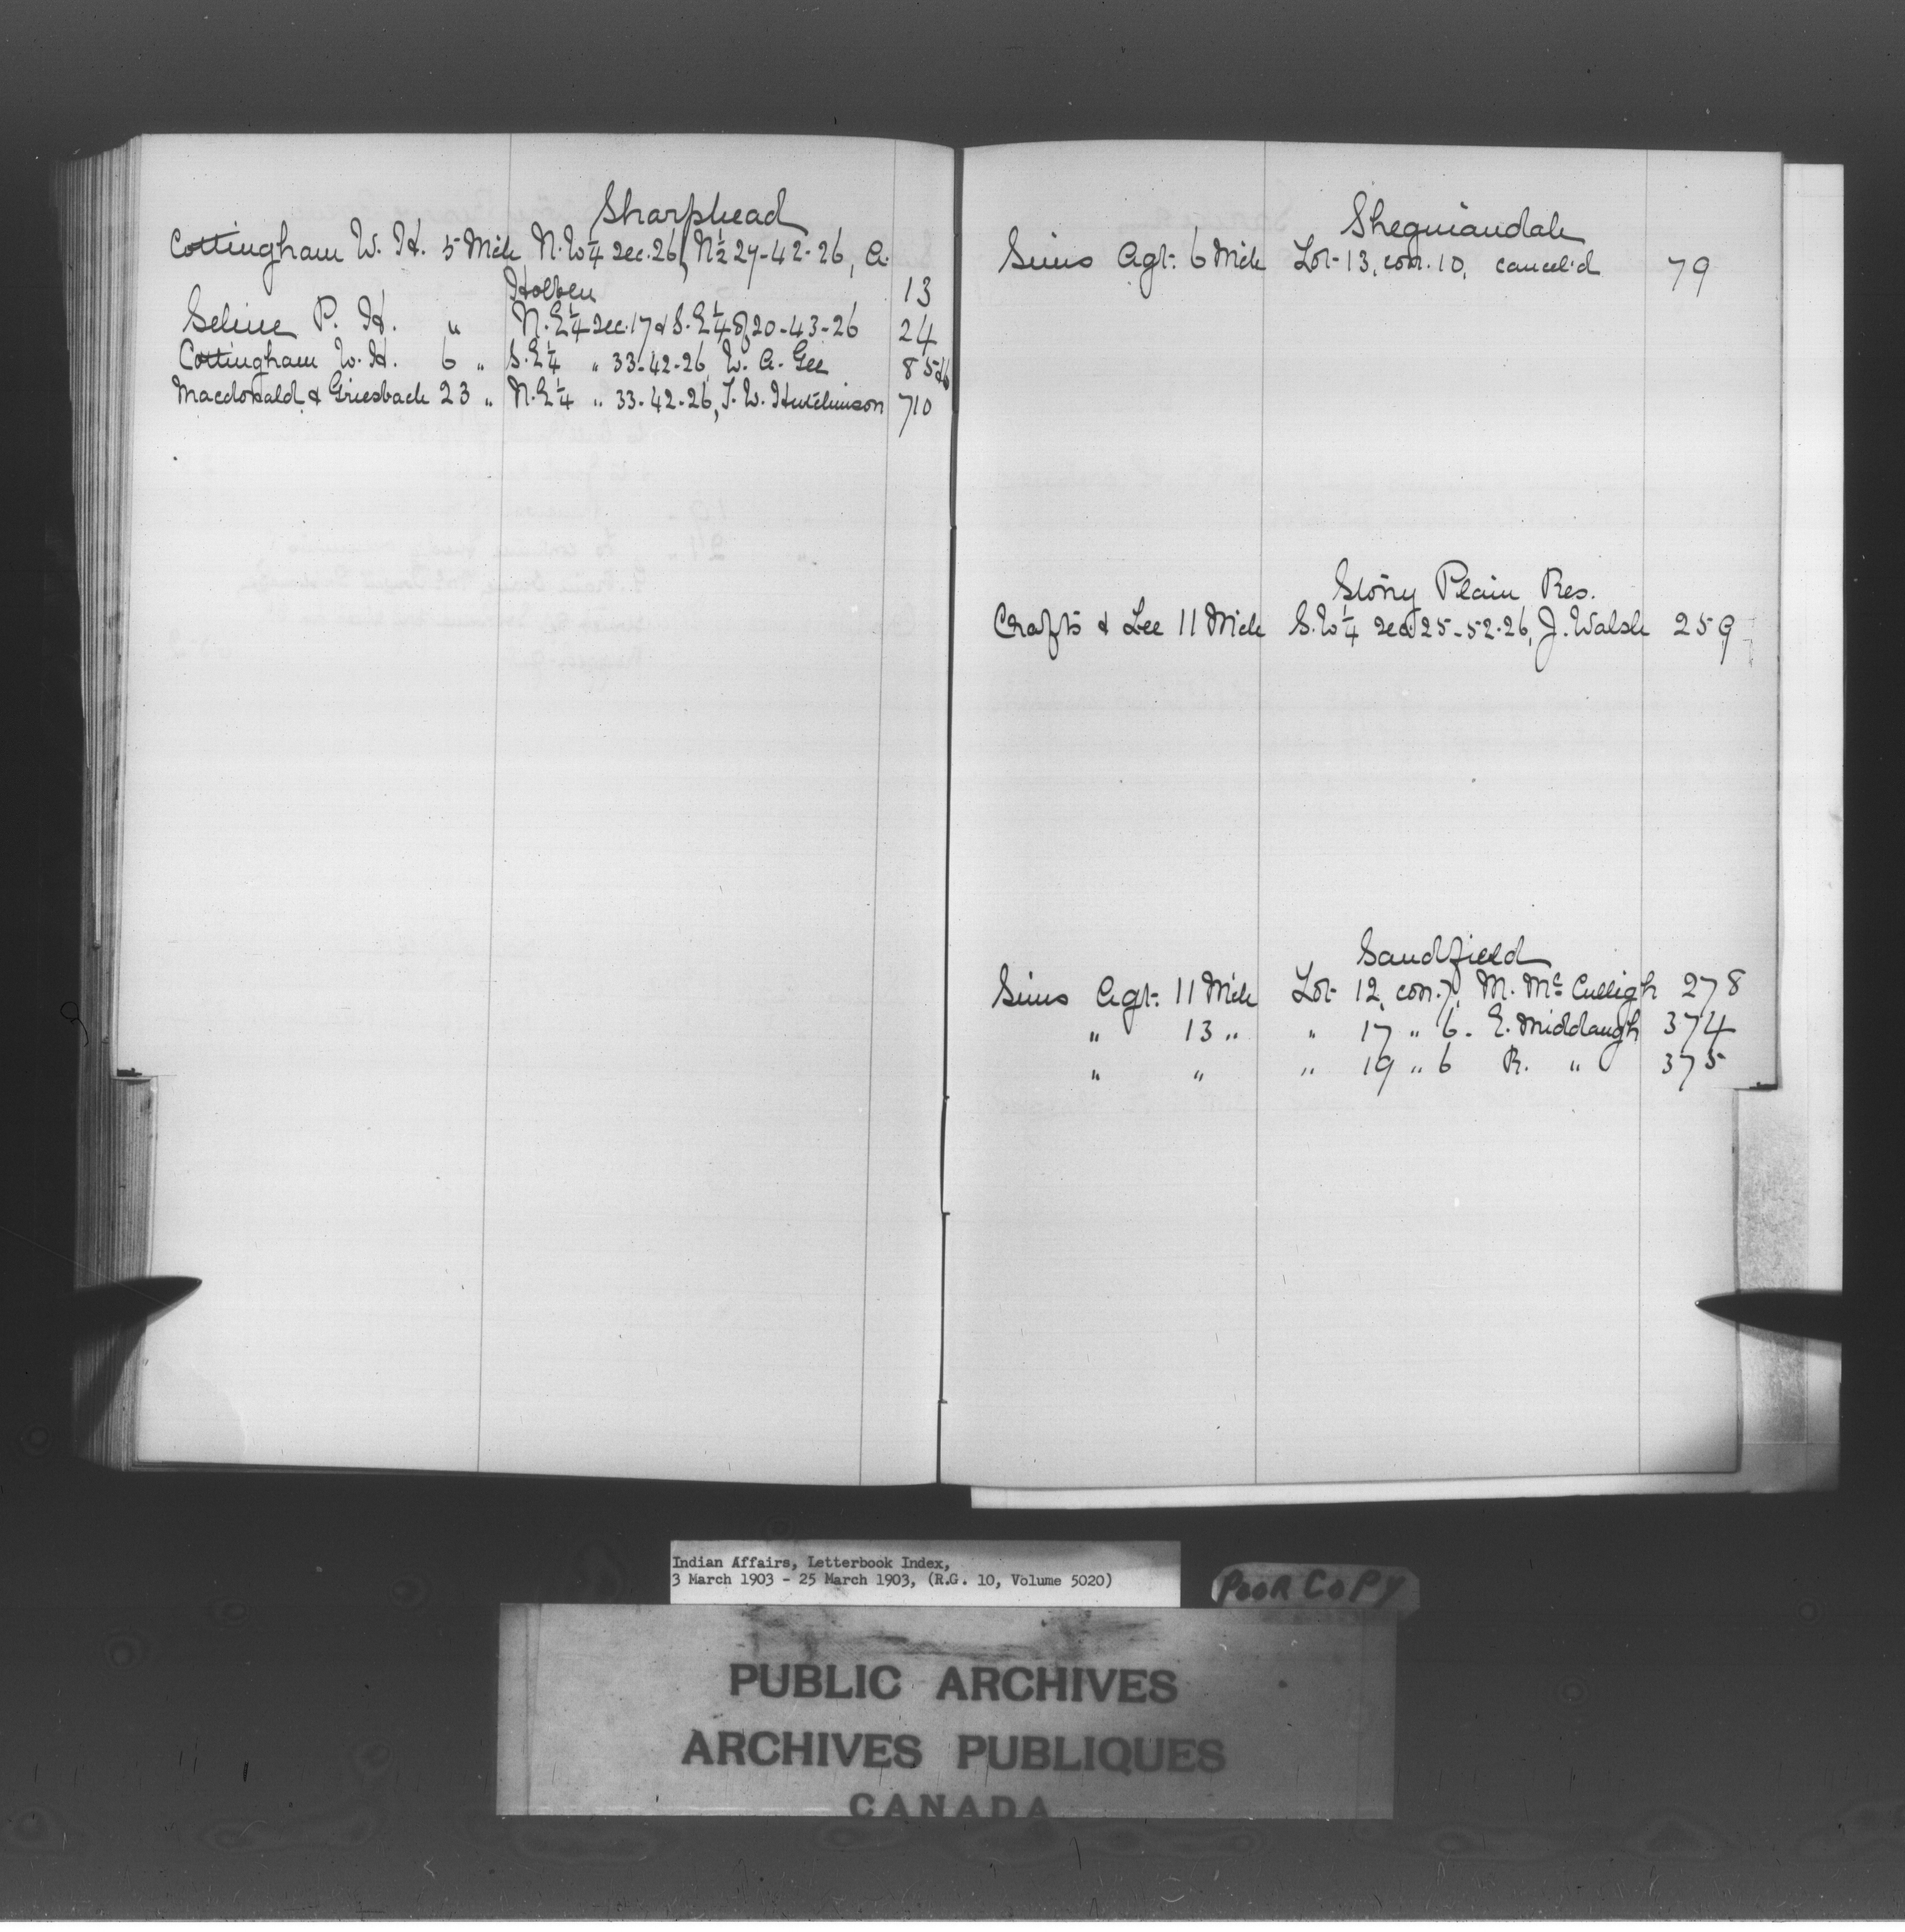 Sharphead
Cottingham W. H. 5 Mch N.W¼ Sec. 26, N½ 27-42-26, A.
Holben 13
Seline P. H. " N.E¼ Sec. 17 & S.E¼ of 20-43-26 24
Cottingham W. H. 6 " S.E¼ " 33-42-26, W. A. Gee 85
Macdonald & Griesbach 23 " N.E¼ " 33-42-26, J. W. Hutchinson 710
Sheguiandah
Sims Agt. 6 Mch Lot 13, con. 10, cancel'd 79
Stony Plain Res.
Crafts & Lee 11 Mch S.W¼ Sec. 25-52-26, J. Walsh 259
Sandfield
Sims Agt. 11 Mch Lot 12, con. 7, M. Mc Culligh 278
" 13 " " 17 " 6. E. Middaugh 374
" " " 19 " 6 R. " 375
Indian Affairs, Letterbook Index,
3 March 1903 - 25 March 1903, (R.G. 10, Volume 5020)
POOR COPY
PUBLIC ARCHIVES
ARCHIVES PUBLIQUES
CANADA